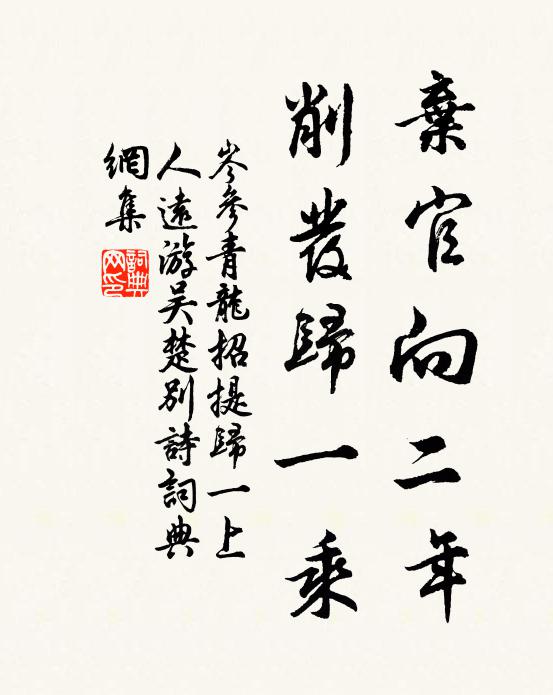 棄官向二年
削發歸一乘
岑參青龍招提歸一上
人遠游吴楚別詩詞典
網集
詞典网印